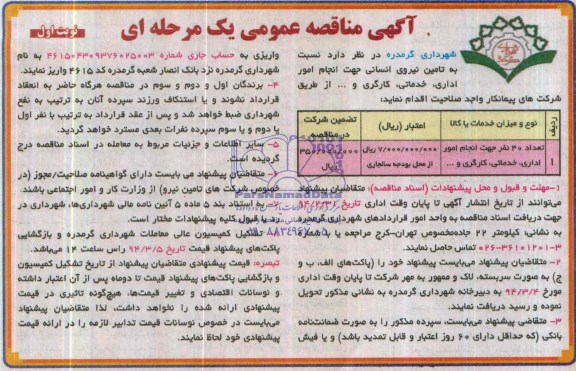 آگهی مناقصه عمومی یک مرحله ای
نوبت اول
شهرداری گرمدره در نظر دارد نسبت
به تامین نیروی انسانی جهت انجام امور
اداری، خدماتی، کارگری و ... از طریق
شرکت های پیمانکار واجد صلاحیت اقدام نماید:
ردیف
نوع و میزان خدمات یا کالا
اعتبار (ریال)
تضمین شرکت
در مناقصه
۱
تعداد ۴۰ نفر جهت انجام امور
اداری، خدماتی، کارگری و ...
۷/۰۰۰/۰۰۰/۰۰۰ ریال
از محل بودجه سالجاری
۳۵۰/۰۰۰/۰۰۰
ریال
۱-مهلت و قبول و محل پیشنهادات (اسناد مناقصه): متقاضیان پیشنهاد
می‌توانند از تاریخ انتشار آگهی تا پایان وقت اداری تاریخ ۹۴/۲/۳۱
جهت دریافت اسناد مناقصه به واحد امور قراردادهای شهرداری گرمدره
به نشانی: کیلومتر ۲۲ جاده‌مخصوص تهران-کرج مراجعه یا با شماره
۰۲۶-۳۶۱۰۱۲۰۱-۳ تماس حاصل نمایند.
۲- متقاضیان پیشنهاد می‌بایست پیشنهاد خود را (پاکت‌های الف، ب و
ج) به صورت سربسته، لاک و ممهور به مهر شرکت تا پایان وقت اداری
مورخ ۹۴/۳/۴ به دبیرخانه شهرداری گرمدره به نشانی مذکور تحویل
نموده و رسید دریافت نمایند.
۳- متقاضی پیشنهاد می‌بایست، سپرده مذکور را به صورت ضمانت‌نامه
بانکی (که حداقل دارای ۶۰ روز اعتبار و قابل تمدید باشد) و یا فیش
واریزی به حساب جاری شماره ۴۶۱۵۰۴۳۰۹۳۷۶۰۲۵۰۰۳ به نام
شهرداری گرمدره نزد بانک انصار شعبه گرمدره کد ۴۶۱۵ واریز نمایند.
۴- برندگان اول و دوم و سوم در مناقصه هرگاه حاضر به انعقاد
قرارداد نشوند و یا استنکاف ورزند سپرده آنان به ترتیب به نفع
شهرداری ضبط خواهد شد و پس از عقد قرارداد به ترتیب با نفر اول
یا دوم و یا سوم سپرده نفرات بعدی مسترد خواهد گردید.
۵- سایر اطلاعات و جزئیات مربوط به معامله در اسناد مناقصه درج
گردیده است.
۶- متقاضیان پیشنهاد می بایست دارای گواهینامه صلاحیت/مجوز (در
خصوص شرکت های تامین نیرو) از وزارت کار و امور اجتماعی باشند.
۷- به استناد بند ۵ ماده ۵ آئین نامه مالی شهرداری‌ها، شهرداری در
رد یا قبول کلیه پیشنهادات مختار است.
۸- تشکیل کمیسیون عالی معاملات شهرداری گرمدره و بازگشایی
پاکت‌های پیشنهاد قیمت تاریخ ۹۴/۳/۵ راس ساعت ۱۴ می‌باشد.
تبصره: قیمت پیشنهادی متقاضیان پیشنهاد از تاریخ تشکیل کمیسیون
و بازگشایی پاکت‌های پیشنهاد قیمت تا دوماه پس از آن اعتبار داشته
و نوسانات اقتصادی و تغییر قیمت‌ها، هیچ‌گونه تاثیری در قیمت
پیشنهادی ارائه شده را نخواهد داشت، لذا متقاضیان پیشنهاد
می‌بایست در خصوص نوسانات قیمت تدابیر لازمه را در ارائه قیمت
پیشنهادی خود لحاظ نمایند.
ParsNamadData